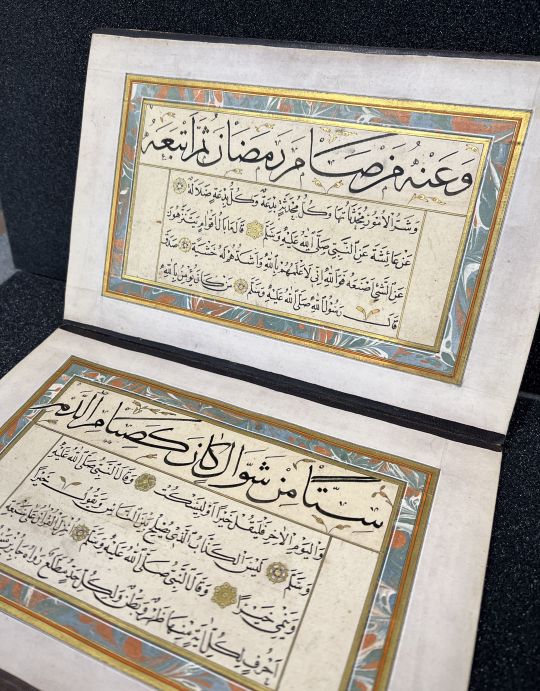 وَعَنْهُ مَنْ صَامَ رَمَضَانَ ثُمَّ اَتْبَعَهُ
وَشَرُّ الْاُمُورِ مُحْدَثَاتُهَا وَكُلُّ مُحْدَثَةٍ بِدْعَةٌ وَكُلُّ بِدْعَةٍ ضَلَالَةٌ
عَنْ عَائِشَةَ عَنِ النَّبِيِّ صَلَّى اللهُ عَلَيْهِ وَسَلَّمَ قَالَ مَا بَالُ اَقْوَامٍ يَتَنَزَّهُونَ
عَنِ الشَّيْءِ اَصْنَعُهُ فَوَاللهِ اِنِّي لَاَعْلَمُهُمْ بِاللهِ وَاَشَدُّهُمْ لَهُ خَشْيَةً صَدَقَ
قَالَ رَسُولُ اللهِ صَلَّى اللهُ عَلَيْهِ وَسَلَّمَ مَنْ كَانَ يُؤْمِنُ بِاللهِ
سِتًّا مِنْ شَوَّالٍ كَانَ كَصِيَامِ الدَّهْرِ
وَالْيَوْمِ الْاٰخِرِ فَلْيَقُلْ خَيْرًا اَوْ لِيَسْكُتْ وَقَالَ النَّبِيُّ صَلَّى اللهُ عَلَيْهِ
وَسَلَّمَ لَيْسَ الْكَذَّابُ الَّذِي يُصْلِحُ بَيْنَ النَّاسِ وَيَقُولُ خَيْرًا
وَيَنْمِي خَيْرًا وَقَالَ النَّبِيُّ صَلَّى اللهُ عَلَيْهِ وَسَلَّمَ نَزَلَ الْقُرْاٰنُ عَلَى سَبْعَةِ
اَحْرُفٍ لِكُلِّ اٰيَةٍ مِنْهَا ظَهْرٌ وَبَطْنٌ وَلِكُلِّ حَدٍّ مَطْلَعٌ